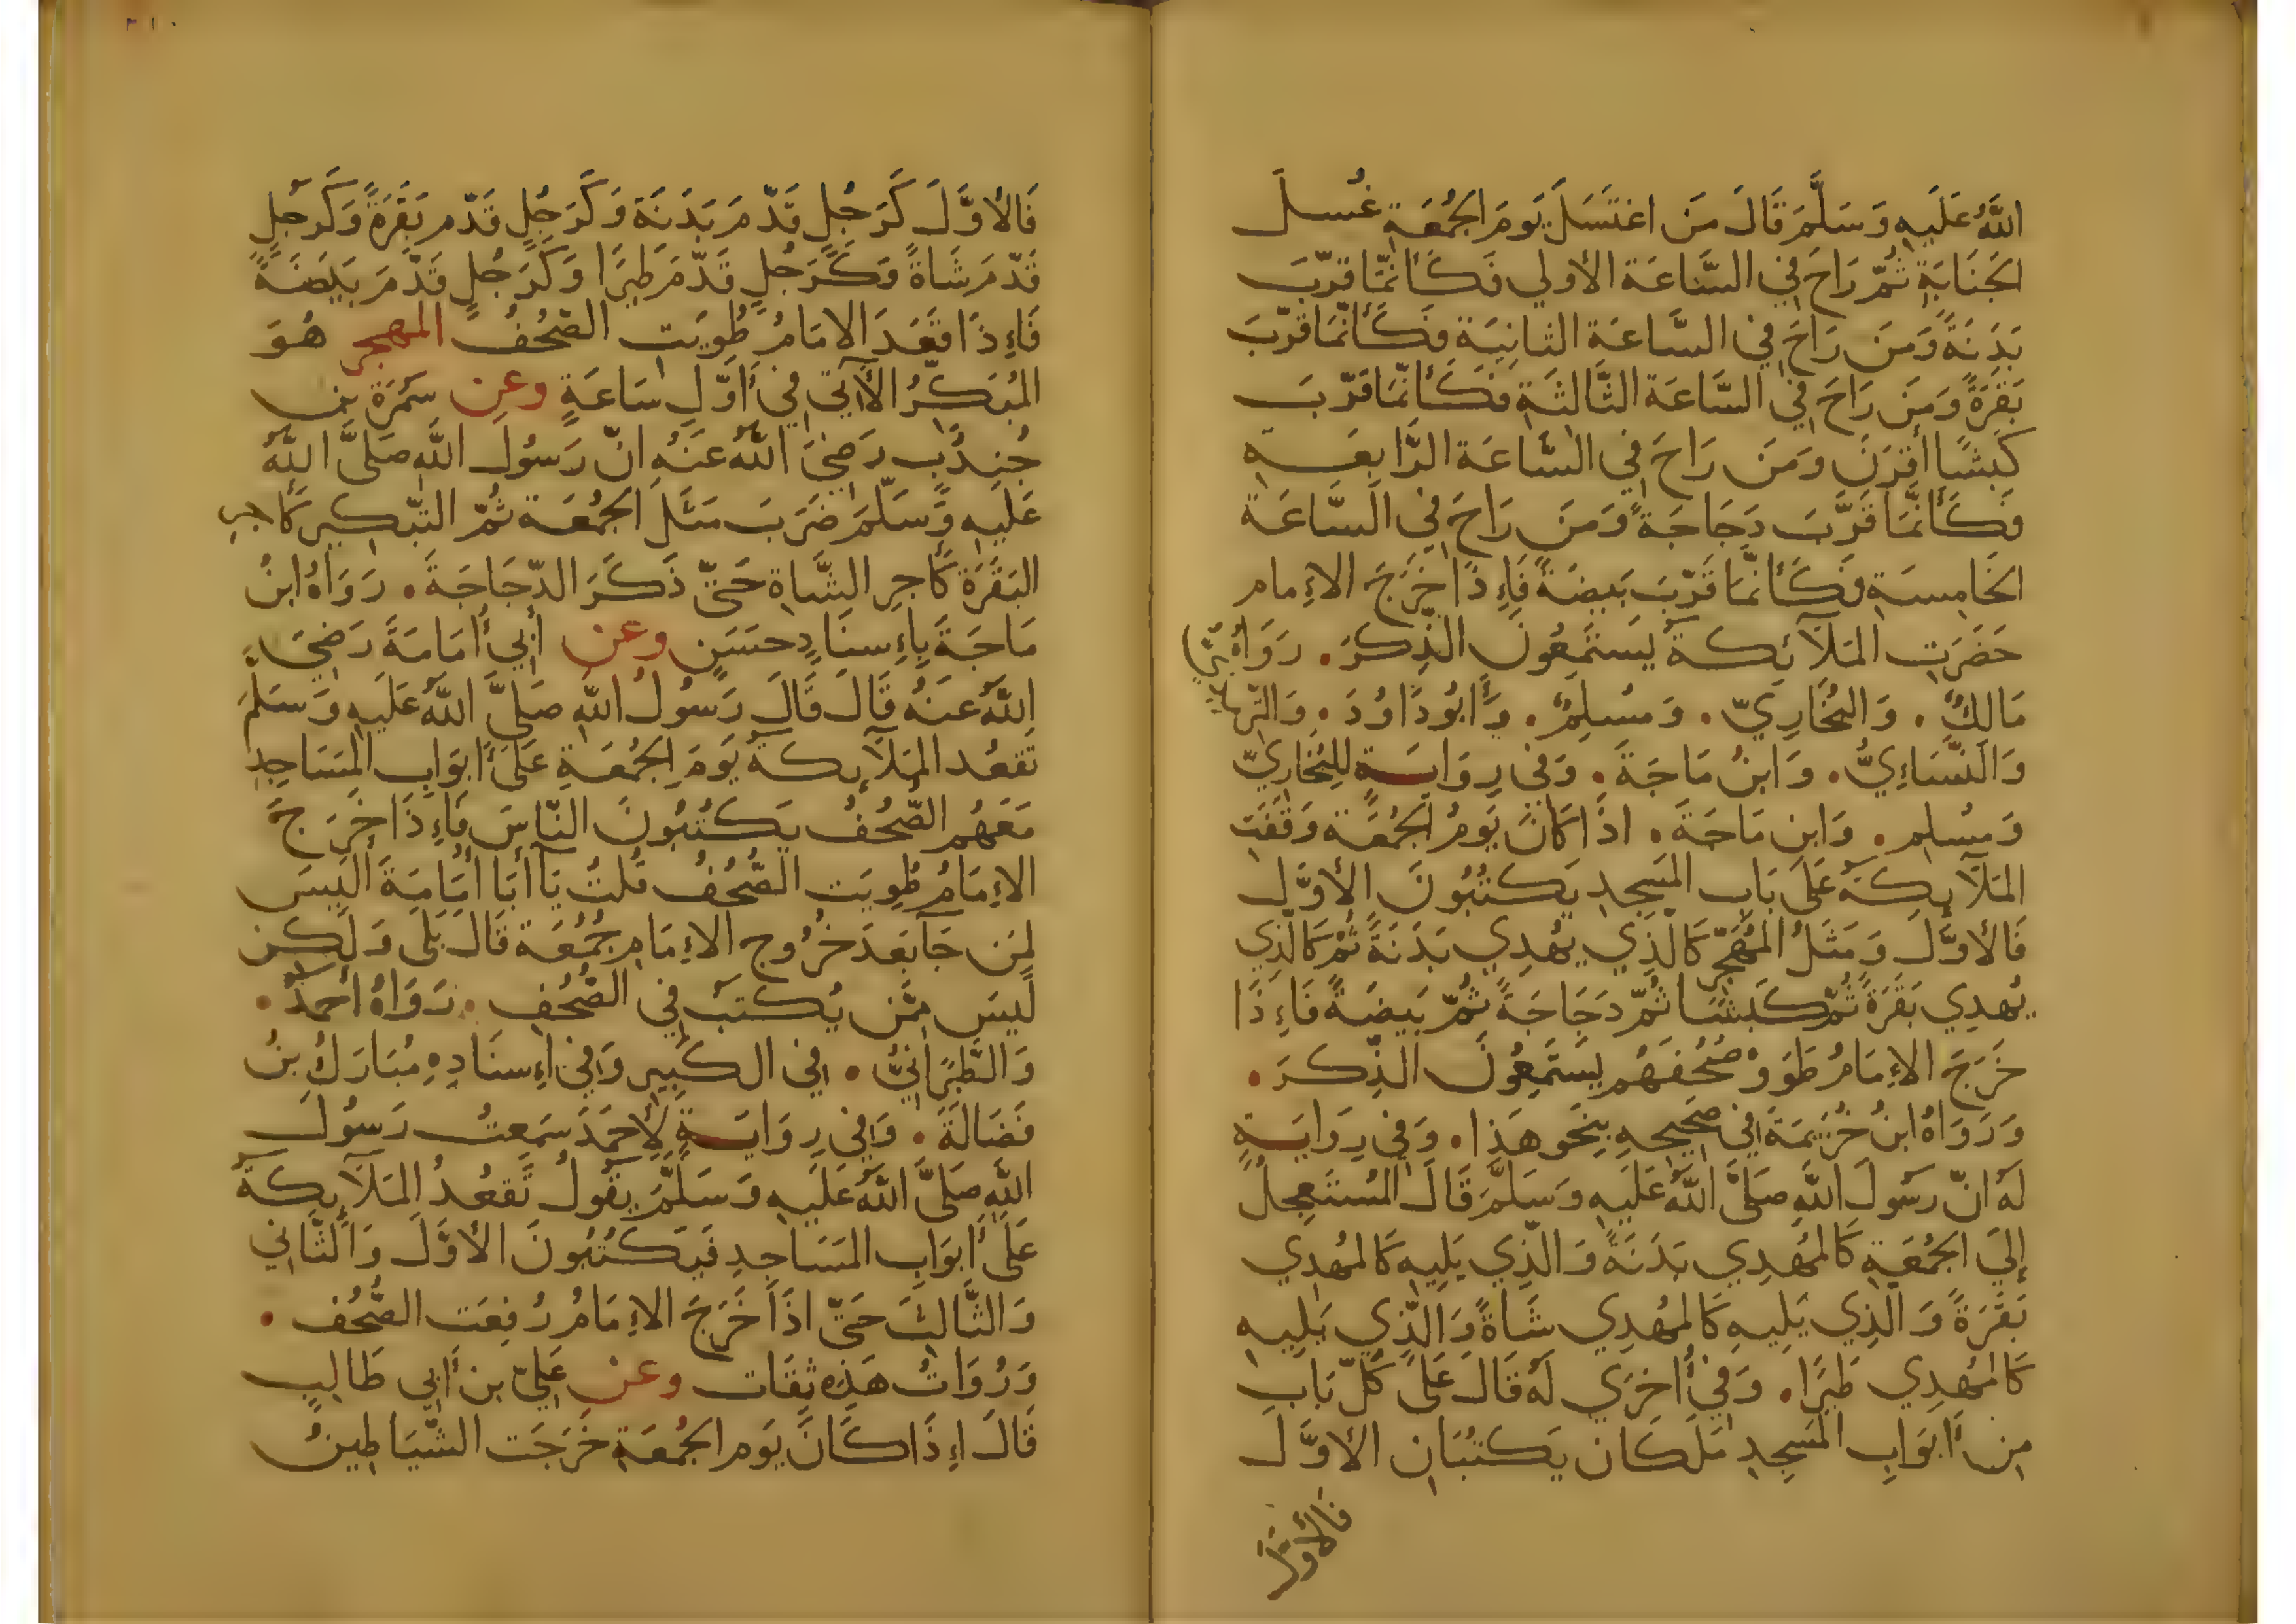 اللَّهُ عَلَيهِ وَسَلَّمَ قَالَ مَن اغتَسَلَ يَومَ الجُمُعَةِ غُسلَ
الجَنَابَةِ ثُمّ رَاحَ فِي السَّاعَة الأولي فَكَأنّمَا قرّبَ
بَدَنَةً وَمَن رَاحَ فِي السَّاعَة الثانِيَة فكَأنّمَا قرّبَ
بَقَرَةً وَمَن رَاحَ فِي السَّاعَة الثَّالثَةِ فكَأنّمَا قَرّبَ
كَبشًا أقرَنَ وَمَن رَاحَ فِي السَّاعَة الرَّابعَه
فَكَأنَّمَا قَرَّبَ دَجَاجَةً وَمَن رَاحَ فِي السَّاعَة
الخَامِسَةِ فكَأنّمَا قَرّبَ بَيضَةً فَإِذَا خَرَجَ الإِمام
حَضَرَتِ المَلَآئِكةُ يَستَمِعُونَ الذِكرَ. رَوَاهُ
مَالِكٌ. وَالبُخَارِيّ. وَمُسْلِمٌ. وَأبُودَاوُدَ. وَالتّرمِذِيّ
وَالنَّسَاءِيُّ. وَابنُ مَاجَةَ. وَفي رِوَايَةٍ لِلبُخَارِيّ
وَمُسْلِم. وَابنِ مَاجَةَ. اذَا كَانَ يَومُ الجُمُعَة وَقَفَت
المَلَآيِكَةُ عَلَى بَاب المَسجِدِ يَكتُبُونَ الأوَّلَ
فَالأوَّلَ وَمَثَلُ المُهَجّرِ كَالَّذِي يُهدِي بَدَنَةً ثُمّ كَالّذِي
يُهدِي بَقَرَةً ثُمّ كَبشًا ثُمّ دَجَاجَةً ثُمّ بَيضَةً فَاءِذَا
خَرَجَ الإِمَامُ طَوَوْ صُحُفَهُم يَستَمِعُونَ الذِّكرَ.
وَرَوَاهُ ابنُ خُزَيمَةَ فِي صَحِيحِهِ بِنَحوِ هَذا. وَفِي رِوَايَةٍ
لَهُ انّ رسُولَ اللَّهِ صَلَّى اللَّهُ عَلَيهِ وَسَلَّمَ قَالَ المُستَعجِلُ
إلَي الجُمُعَةِ كَالمُهدِي بَدَنَةً وَالّذِي يَلِيهِ كَالمُهدِي
بَقَرَةً وَالّذِي يَلِيهِ كَالمُهدِي شَاةً وَالّذِي يَلِيهِ
كَالمُهدِي طَيرًا. وَفِي أُخرَي لَهُ قَالَ عَلَى كُلّ بَابِ
مِن أبوَابِ المَسجِدِ مَلَكَانِ يَكتُبَانِ الأوَّلَ
فالأوّلَ
فَالأوَّلَ كَرَجُلٍ قَدّمَ بَدَنَة وَكَرَجُلٍ قَدّم بَقَرَةً وَكَرَجُلٍ
قَدّمَ شَاةً وَكَرَجُلٍ قَدّمَ طَيرًا وَكَرَجُلٍ قَدّمَ بَيضَةً
فَإِذَا قَعَدَ الامَامُ طُوِيَتِ الصُّحُفُ المهجر هُوَ
المُبَكِّرُ الأآتِي فِي أوّلِ سَاعَةٍ وعن سَمُرَة بن
جُندُبٍ رَضِيَ اللَّهُ عَنهُ انّ رَسُولَ اللَّهِ صَلَّى اللَّهُ
عَلَيهِ وَسَلّمَ ضَرَبَ مَثَلَ الجُمُعَة ثُمّ التّبكِيرِ كَأجرِ
البَقَرَة كَأجرِ الشَّاةِ حَتّى ذَكَرَ الدّجَاجَةَ. رَوَاهُ ابنُ
مَاجَةَ بِاءِسنَادٍ حسَنٍ وعن أبِي أُمَامَةَ رَضِيَ
اللَّهُ عَنهُ قَالَ قَالَ رَسُولُ اللَّهِ صَلَّى اللَّهُ عَلَيهِ وَسَلّمَ
تَقعُد المَلَآيِكةُ يَومَ الجُمُعَةِ عَلَى أبوَابِ المَسَاجِدِ
مَعَهُم الصُّحُفُ يَكتُبُونَ النّاسَ فَاءِذَا خَرَجَ
الإِمَامُ طُوِيَت الصُّحُفُ قُلتُ يَا أبَا أُمَامَةَ ألَيسَ
لِمَن جَآ بَعدَ خُرُوج الإِمَامِ جُمُعَة قَالَ بَلَى وَلَكن
لَيسَ مِمّن يُكتَبُ فِي الصُّحُفِ. رَوَاهُ أحمَدُ.
وَالطَّبَرَانِيُّ. فِي الكَبِيرِ وَفِي اءِسنَادِهِ مُبَارَكُ بنُ
فَضَالَةَ. وَفِي رِوَايَةٍ لِأحمَدَ سَمِعتُ رَسُولَ
اللَّهِ صَلَّى اللَّهُ عَلَيهِ وَسَلَّمَ يَقُولُ تَقعُدُ المَلَآيِكَةُ
عَلَى أبوَابِ المَسَاجِدِ فَيَكتُبُونَ الأوَّلَ وَالثَّانِي
وَالثَّالِثَ حَتّى اذَا خَرَجَ الإِمَامُ رُفِعَت الصُّحُف.
وَرُوَاتُ هَذِهِ ثِقَات وعن عَلِيّ بن أبِي طَالِبٍ
قَالَ اءِذَا كَانَ يَوم الجُمُعَةِ خَرَجَت الشّيَاطِينُ